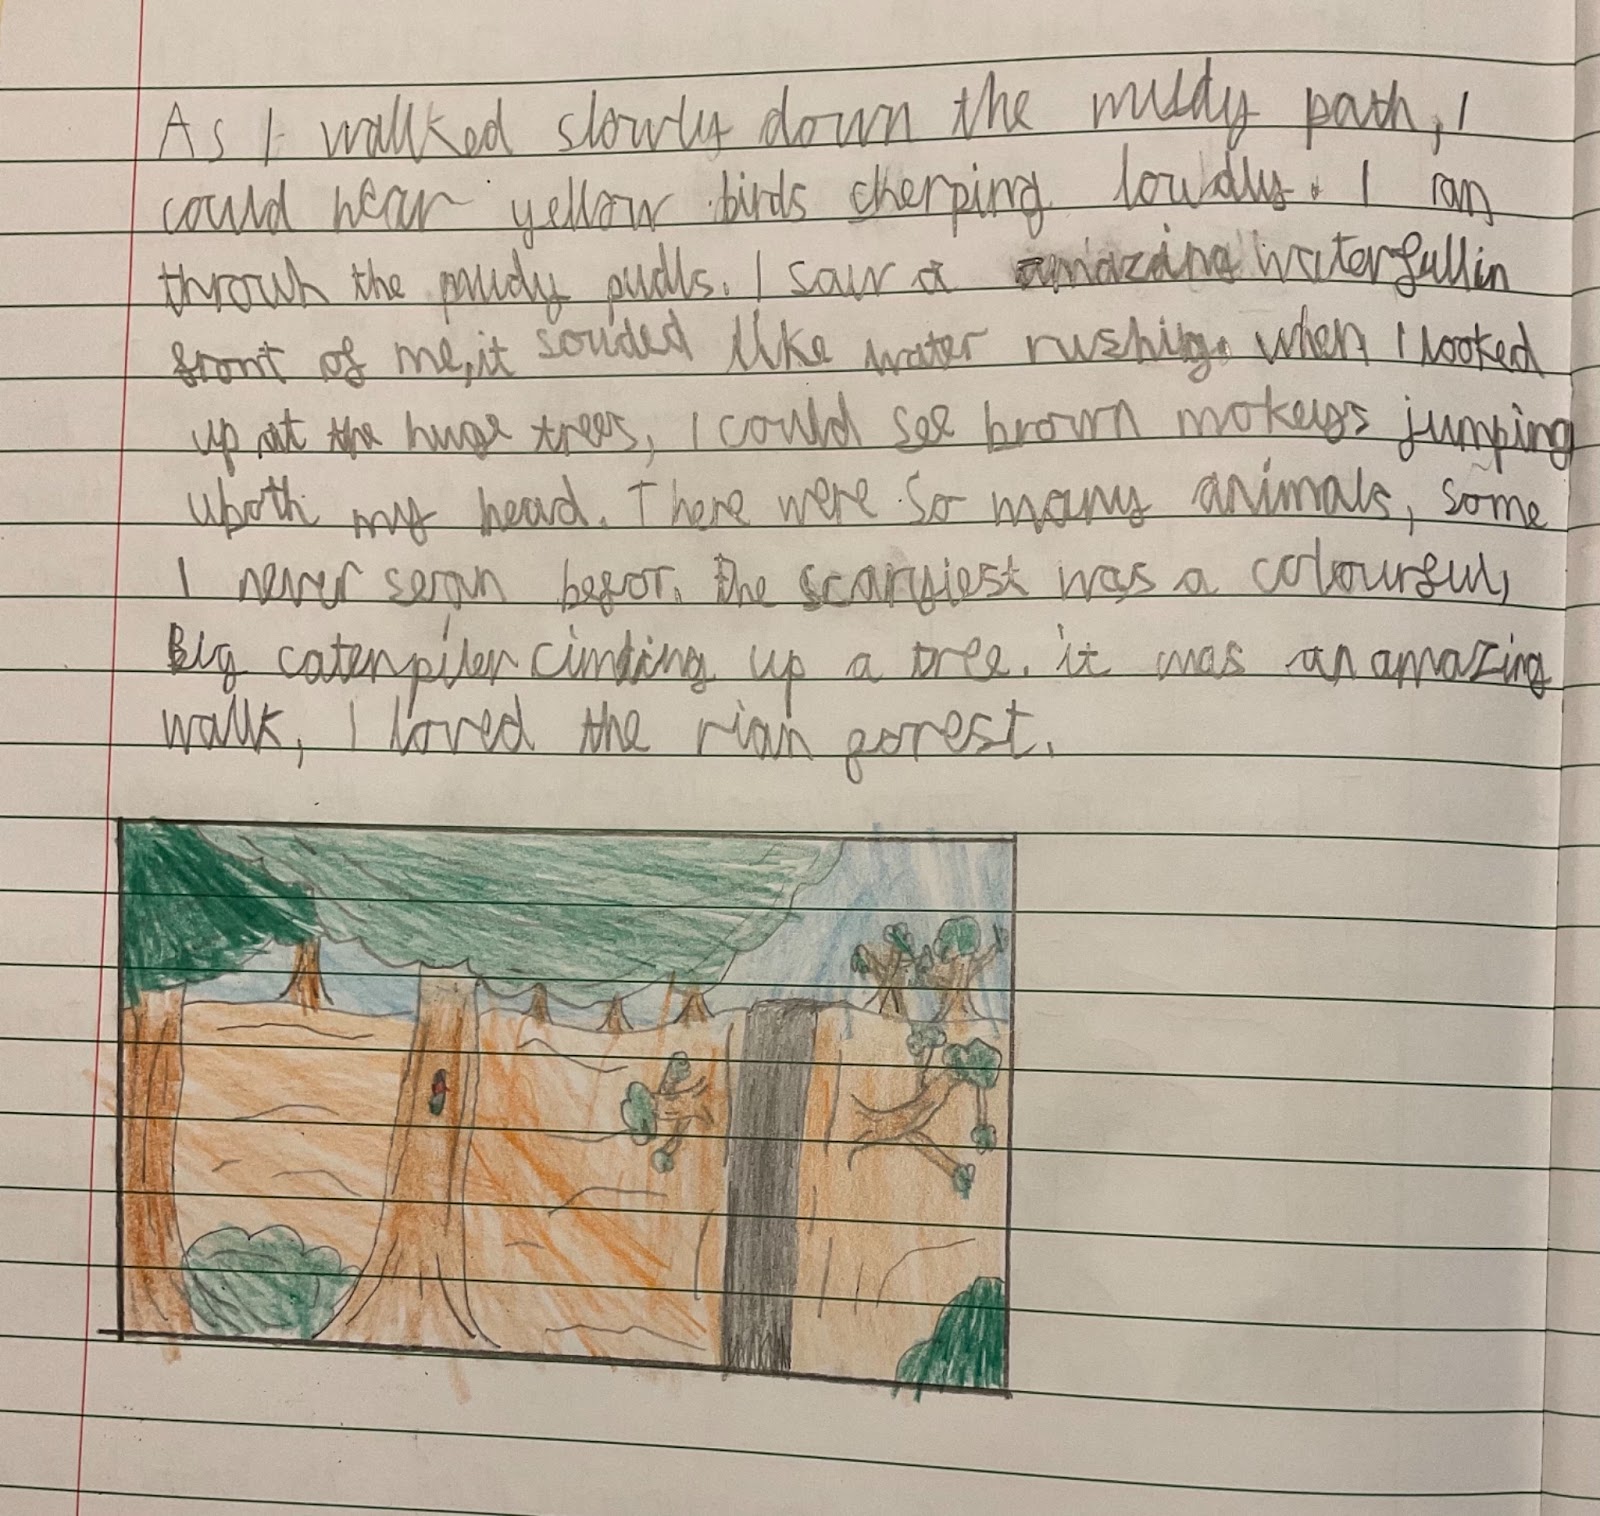 As I walked slowly down the muddy path, I
could hear yellow birds cherping loudly. I ran
throuh the mudy pudls. I saw a amazing waterfull in
front of me, it souded like water rushing. when I looked
up at the huge trees, I could see brown mokeys jumping
uboth my head. There were so many animals, some
I never seran befor. The scaryiest was a colourful,
Big caterpiler cimding up a tree. it was an amazing
walk, I loved the rian forest.